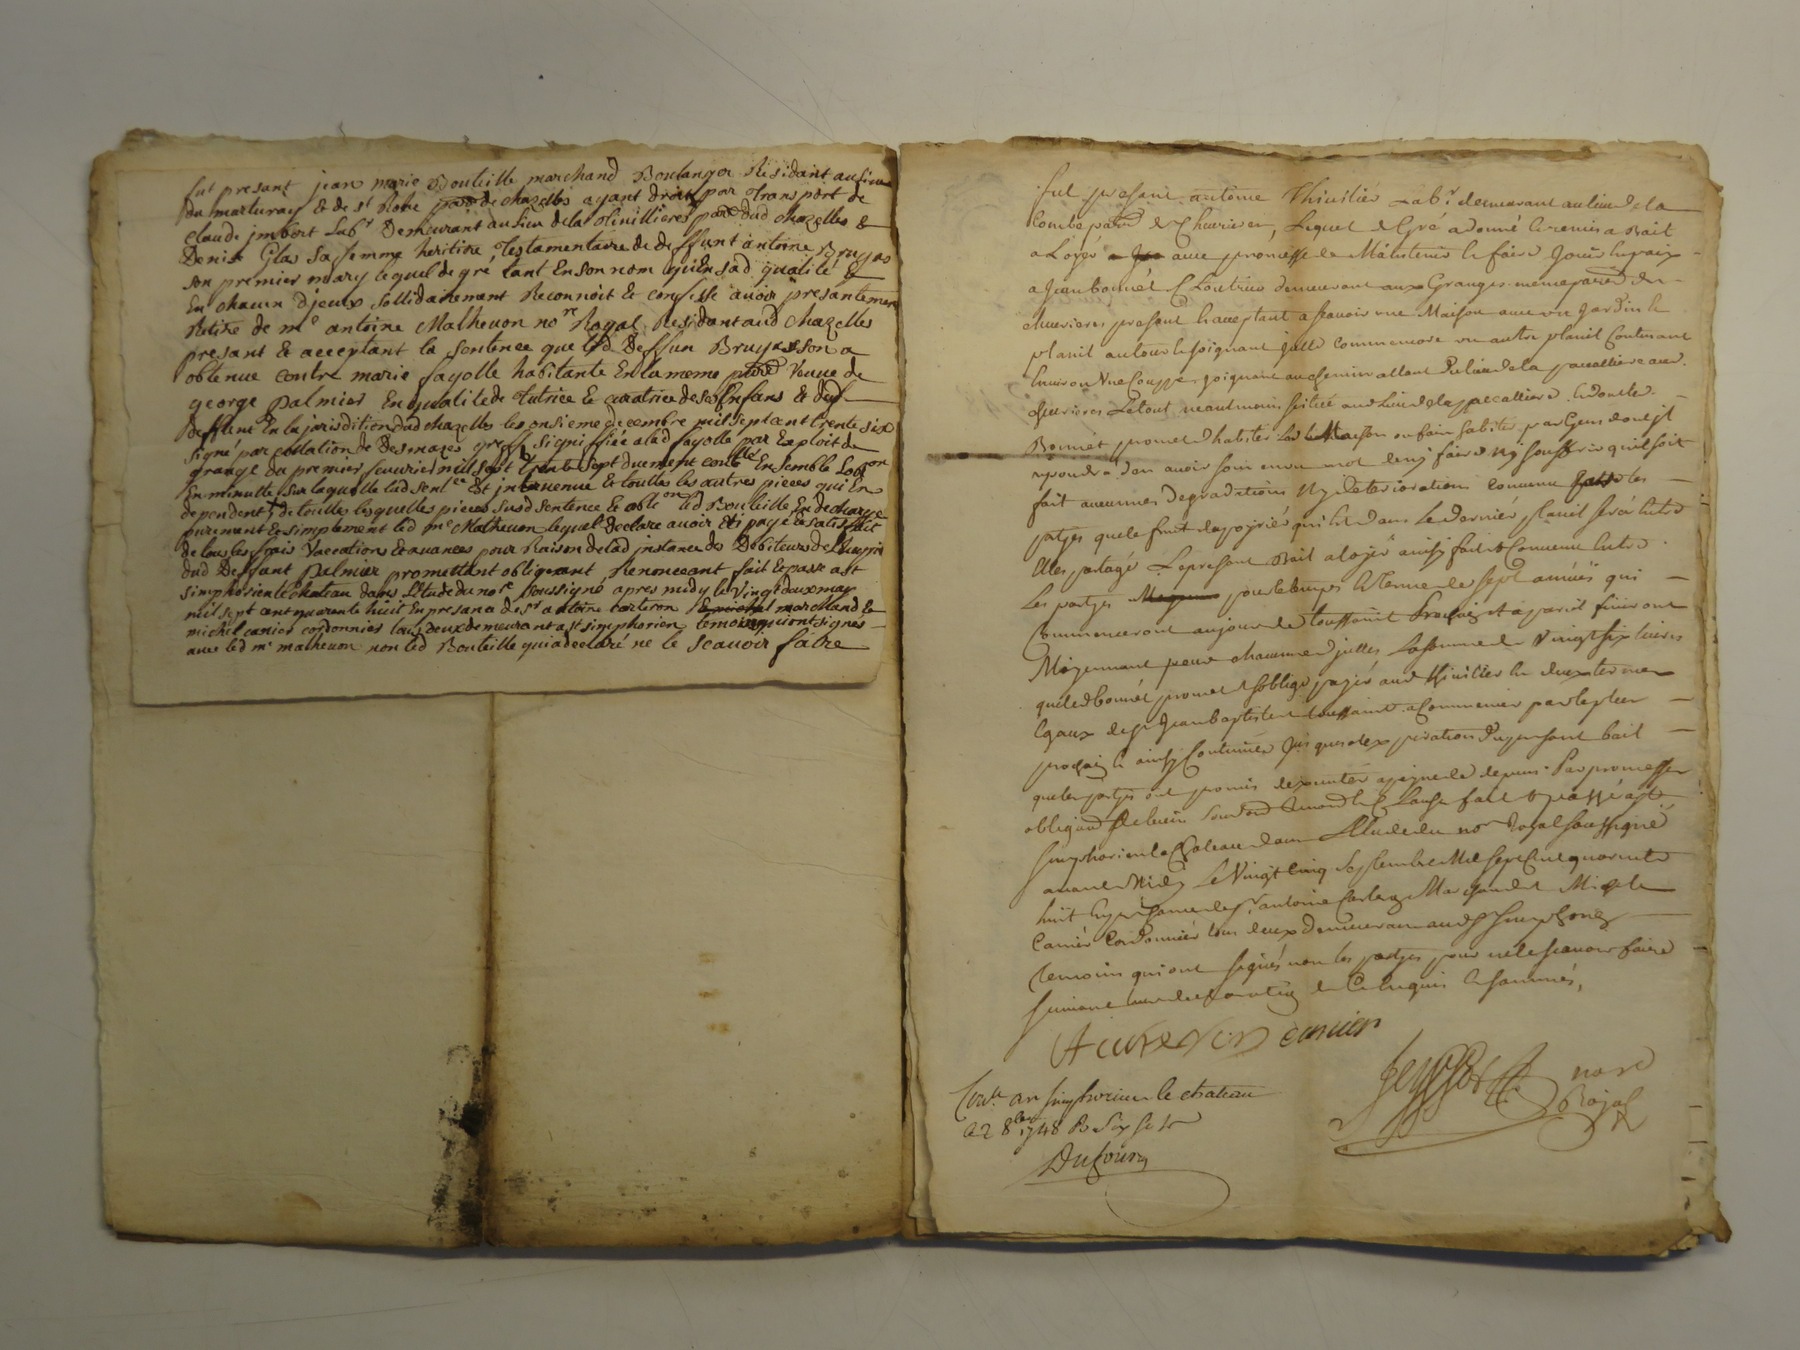 fut present jean marie Bouteille marchand Boulanger Residant au lieu
du marturay & de st Rove parr de chazelles ayant droit par transport de
claude jmbert Labr Demeurant au lieu de la thinillieres parr dud chazelles &
Denise Glas sa femme heritiere Testamentaire de deffunt antoine Bruyas
son premier mary lequel de gre tant En son nom qu'En sad. qualité &
En chacun d'jceux sollidairement Reconnoit & confesse avoir presantement
Retiré de me antoine Matheuon nore Royal Residant aud chazelles
presant & acceptant la sentence que led Deffun Bruyas son a
obtenue contre marie fayolle habitante En la meme parr veuve de
george palmier En qualité de Tutrice & curatrice de ses Enfans & dud
Deffunt En la jurisdition dud chazelles les onsieme decembre mil sept cent trente six
signé par collation de Desmazes greff. signiffiée a lad fayolle par Exploit de
grange du premier feuvrier mil sept trente sept duement conllé Ensemble Lobon
En minutte sur laquelle lad sentce Est jntervenue & touttes les autres pieces qui En
dependent de touttes lesquelles pieces susd sentence & oblon led Bouteille En decharge
purement & simplement led me Matheuon lequel Declare avoir Eté payé & satisffait
de tous les frais vaccations & avances pour Raison de lad jnstance des Debiteurs de
dud Deffunt palmier promettant obligeant Renonceant fait & passé a st
simphorien le chateau dans L'Etude du nore soussigné apres midy le vingt deux may
mil sept cent quarente huit En presance de sr antoine carteron marchand &
michel canier cordonnier tous deux demeurant a st simphorien temoins qui ont signés
avec led me matheuon non led Bouteille qui a declaré ne le scavoir faire
fut present antoine Thinilier Labr demeurant au lieu de la
Combe parr de Chevrieres, Lequel de Gré a donné & remis a Bait
a Loyer avec promesse de Maintenir & faire Jouir en paix
a Jean bonnet demeurant aux Granges meme parr de
chevrieres present & acceptant a scavoir une Maison avec un Jardin &
planit autour & joignant jcelle comme encore un autre planit Contenant
Environ Une Couppe, joignant au chemin allant du lieu de la paccalliere aud.
chevrieres Le tout neantmoins scitué aud lieu de la paccalliere
Bonnet promet d'habiter lad Maison ou faire habiter par Gens dont jl
repondra d'en avoir soin en un mot de ny faire ny souffrir qu'il soit
fait aucunnes degradations ny deteriorations convenu entre les
partyes que le fruit du poyrier qui est dans le dernier planit sera entre
Elles partagé Le present Bait a loyer ainssy fait & Convenu Entre
Les partyes pour le temps & terme de sept années qui
Commenceront au jour de toussaint prochain & a pareil finiront
Moyennant pour chacunne d'jcelles La somme de vingt six livres
que led bonnet promet & s'oblige payer aud thinilier en deux termes
Egaux de st Jean baptiste & toussaint a Commencer par le
prochain & ainssy Continuer jusques a l'expiration du present bait
que les partyes ont promis d'executer a peyne de depens Par promesses
obligaons fait & passé a st
simphorien le Chateau dans L'Etude du nore Royal soussigné
avant Midy Le Vingt Cinq septembre Mil Sept Cent quarente
huit En presance de sr antoine Carteron Marchand & Michel
Canier Cordonnier tous deux demeurans aud st simphorien
temoins qui ont signés non les partyes pour ne le scavoir faire
suivant leur declaration de Ce Enquis & sommés,
A carteron canier
nore
Royal
Conllé a st simphorien le chateau
le 2 8bre 1748 R
Dufour